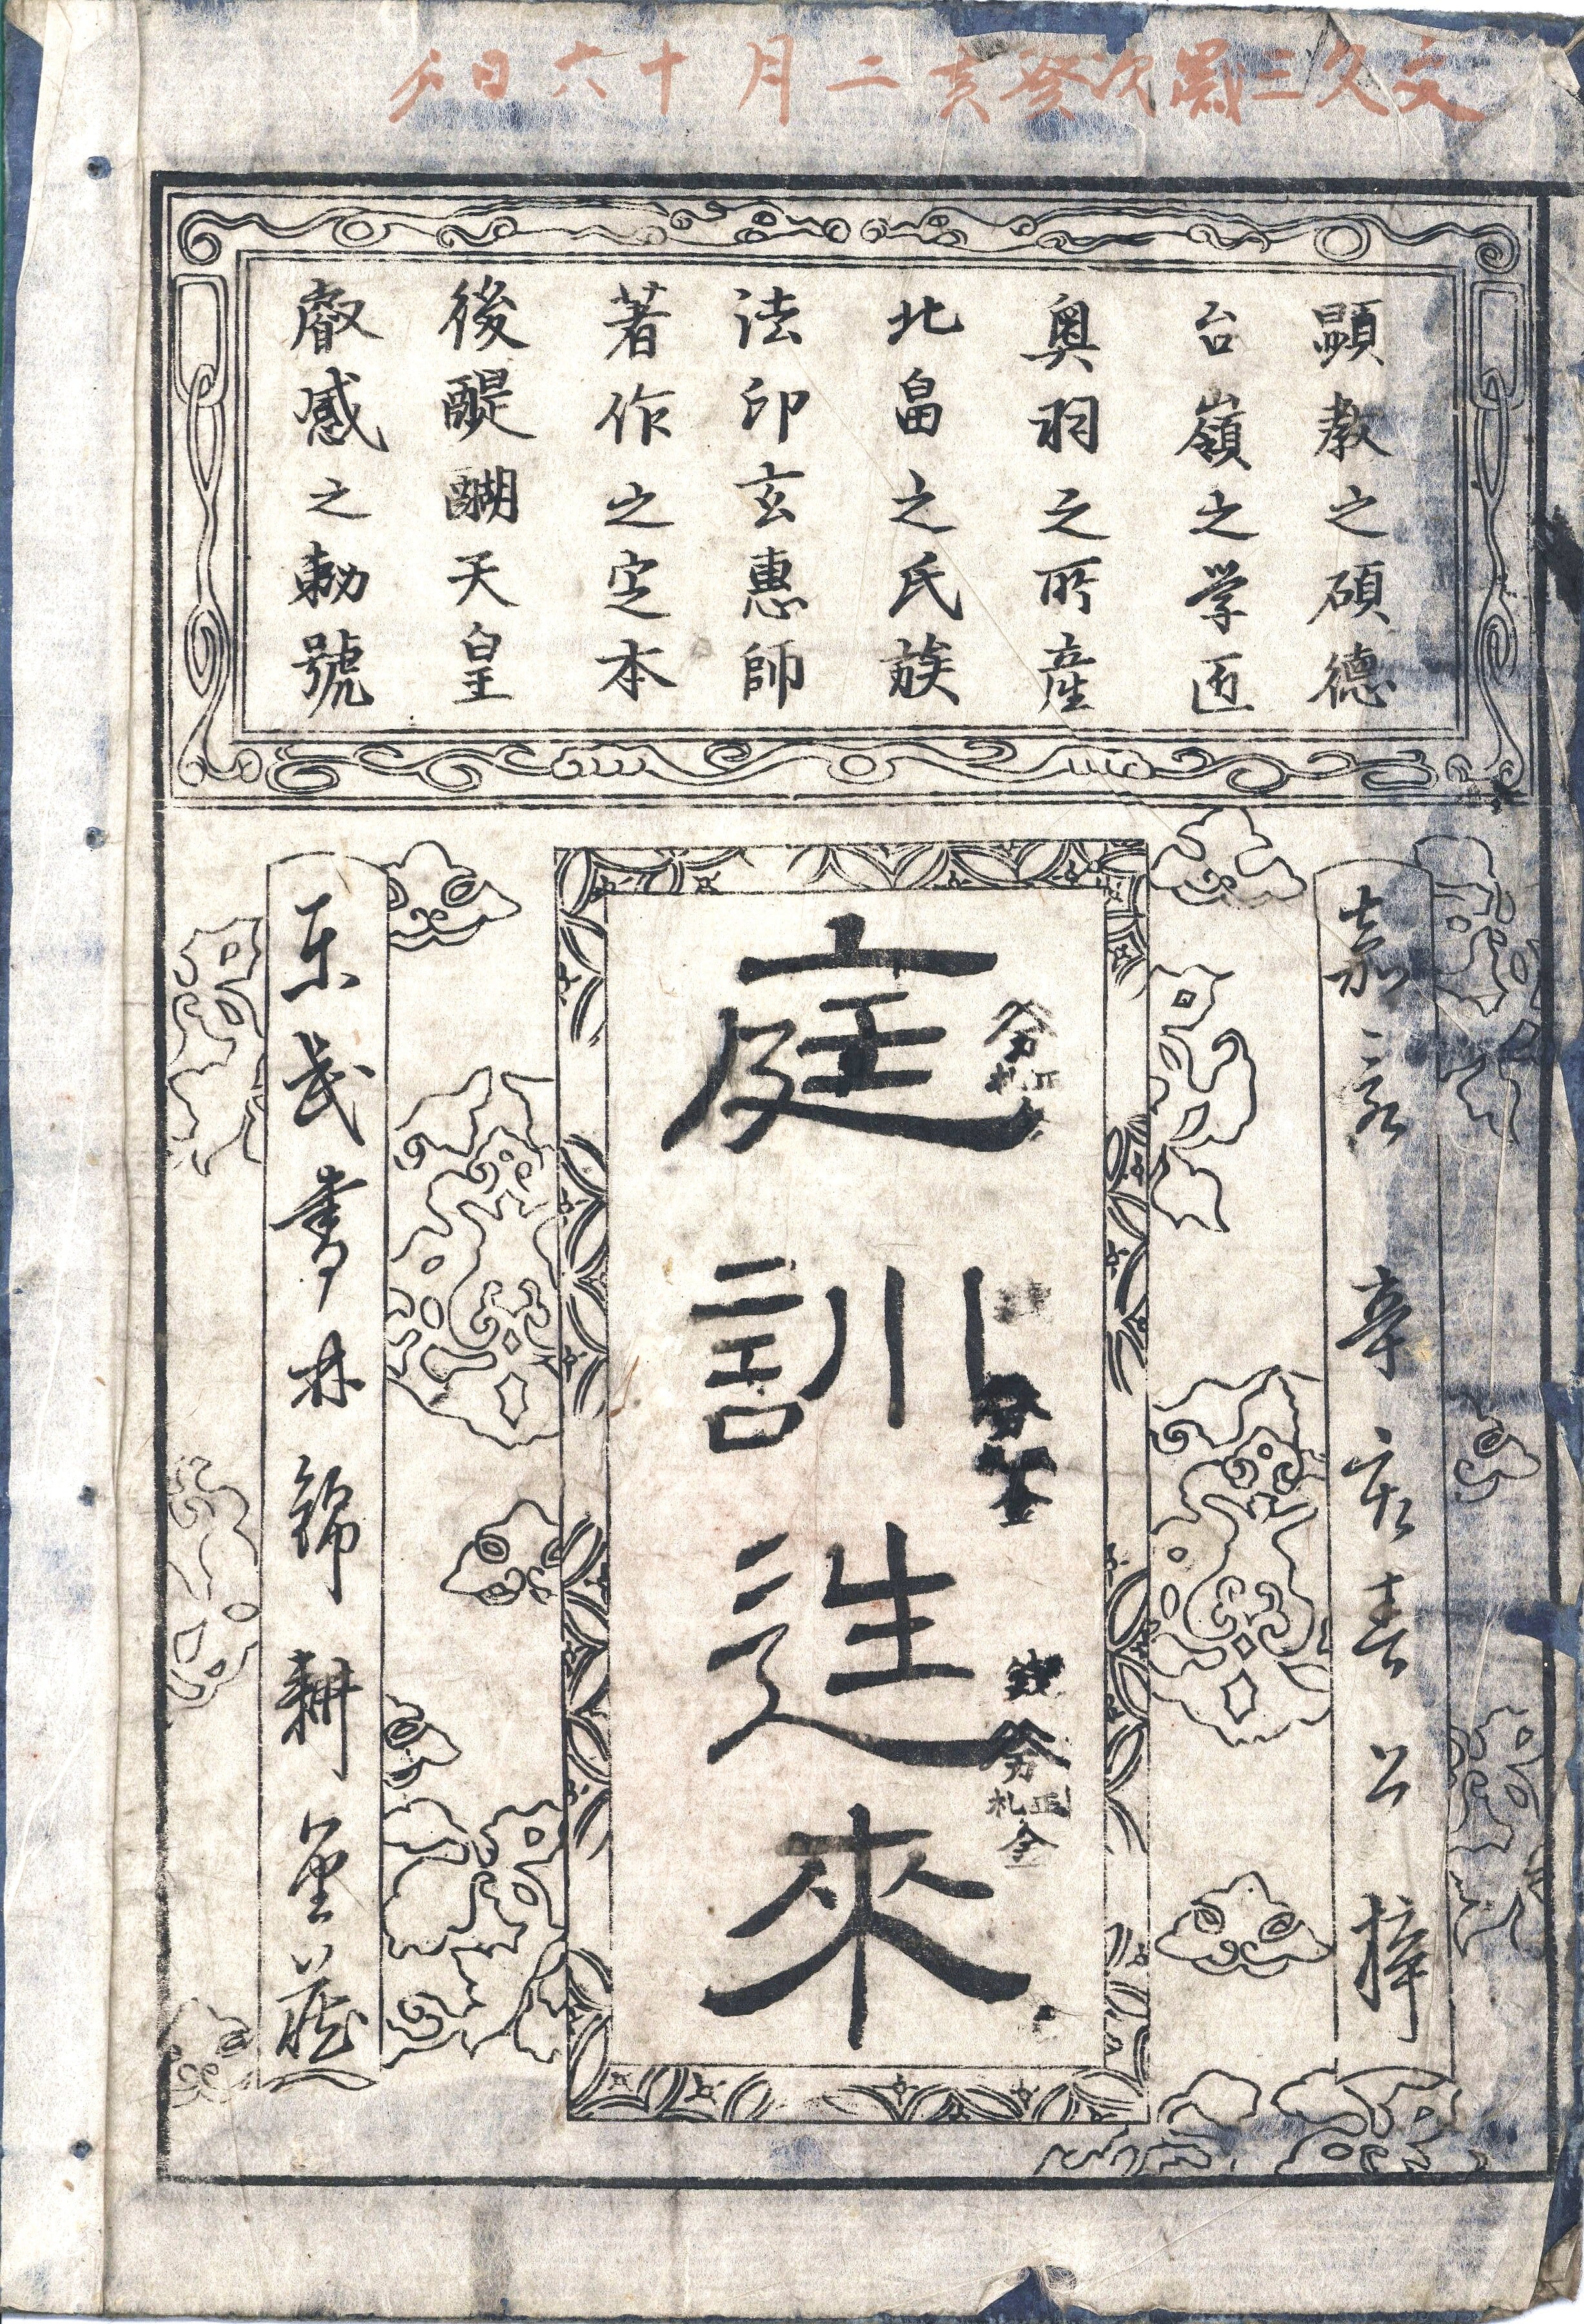 文久三歳次癸亥二月十六日夕
顕教之碩德
台嶺之学匠
奥羽之所産
北畠之氏族
法印玄惠師
著作之定本
後醍醐天皇
叡感之勅號
嘉永辛亥春公梓
庭訓迬來
東武書林錦耕堂蔵